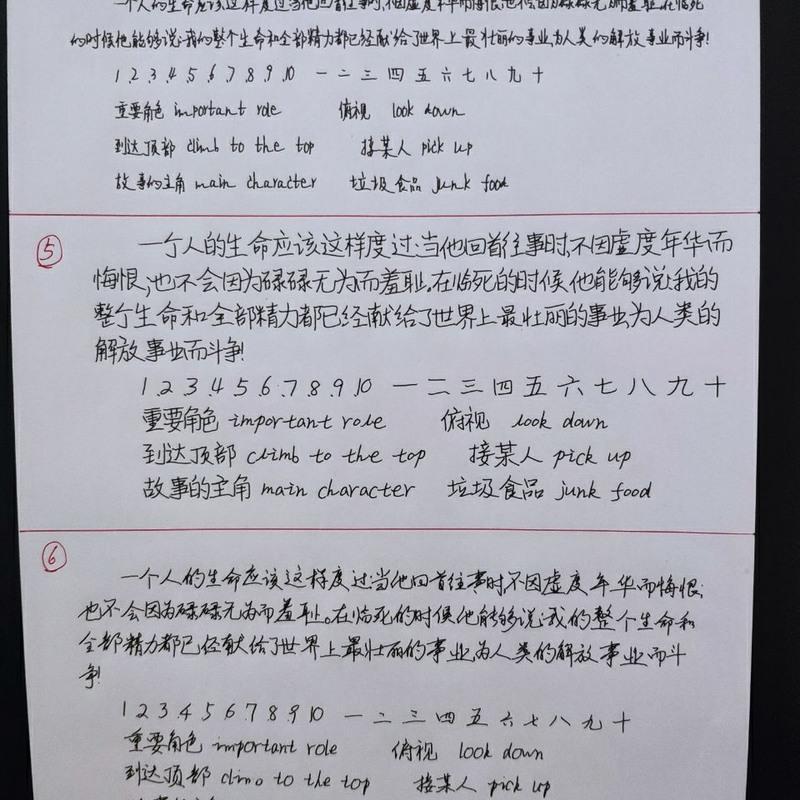 一个人的生命应该这样度过:当他回首往事时,不因虚度年华而悔恨;也不会因为碌碌无为而羞耻。在临死
的时候他能够说:我的整个生命和全部精力都已经献给了世界上最壮丽的事业,为人类的解放事业而斗争!
1.2.3.4.5.6.7.8.9.10 一二三四五六七八九十
重要角色 important role 俯视 look down
到达顶部 climb to the top 接某人 pick up
故事的主角 main character 垃圾食品 junk food
5 一个人的生命应该这样度过:当他回首往事时,不因虚度年华而
悔恨;也不会因为碌碌无为而羞耻。在临死的时候他能够说:我的
整个生命和全部精力都已经献给了世界上最壮丽的事业,为人类的
解放事业而斗争!
1.2.3.4.5.6.7.8.9.10 一二三四五六七八九十
重要角色 important role 俯视 look down
到达顶部 climb to the top 接某人 pick up
故事的主角 main character 垃圾食品 junk food
6
一个人的生命应该这样度过:当他回首往事时,不因虚度年华而悔恨;
也不会因为碌碌无为而羞耻。在临死的时候他能够说:我的整个生命和
全部精力都已经献给了世界上最壮丽的事业,为人类的解放事业而斗
争!
1 2 3.4 5 6.7 8 9 10 一二三四五六七八九十
重要角色 important role 俯视 look down
到达顶部 climb to the top 接某人 pick up